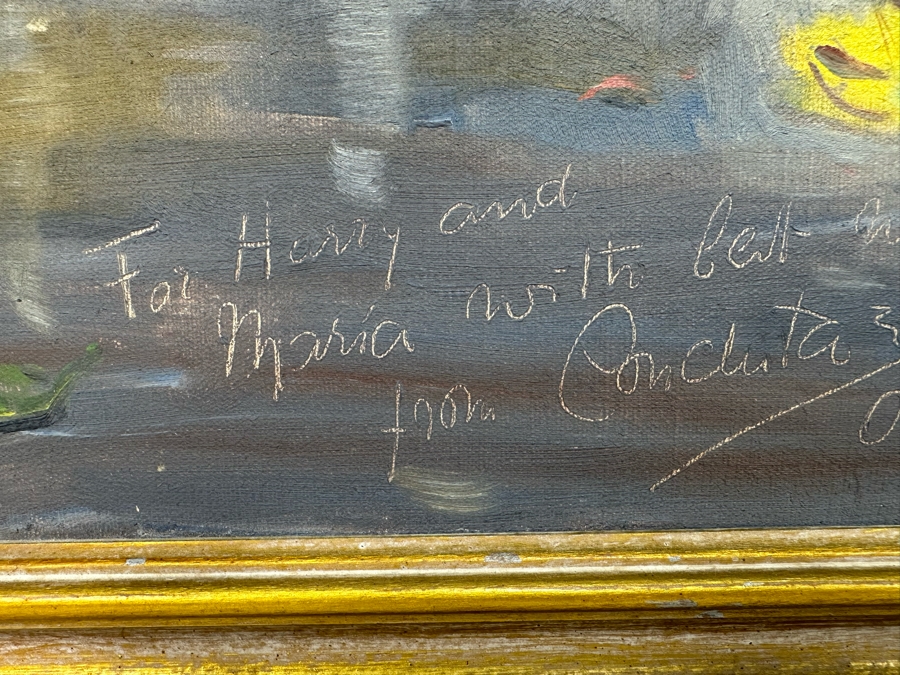 For Harry and
Maria with best
from Conduta